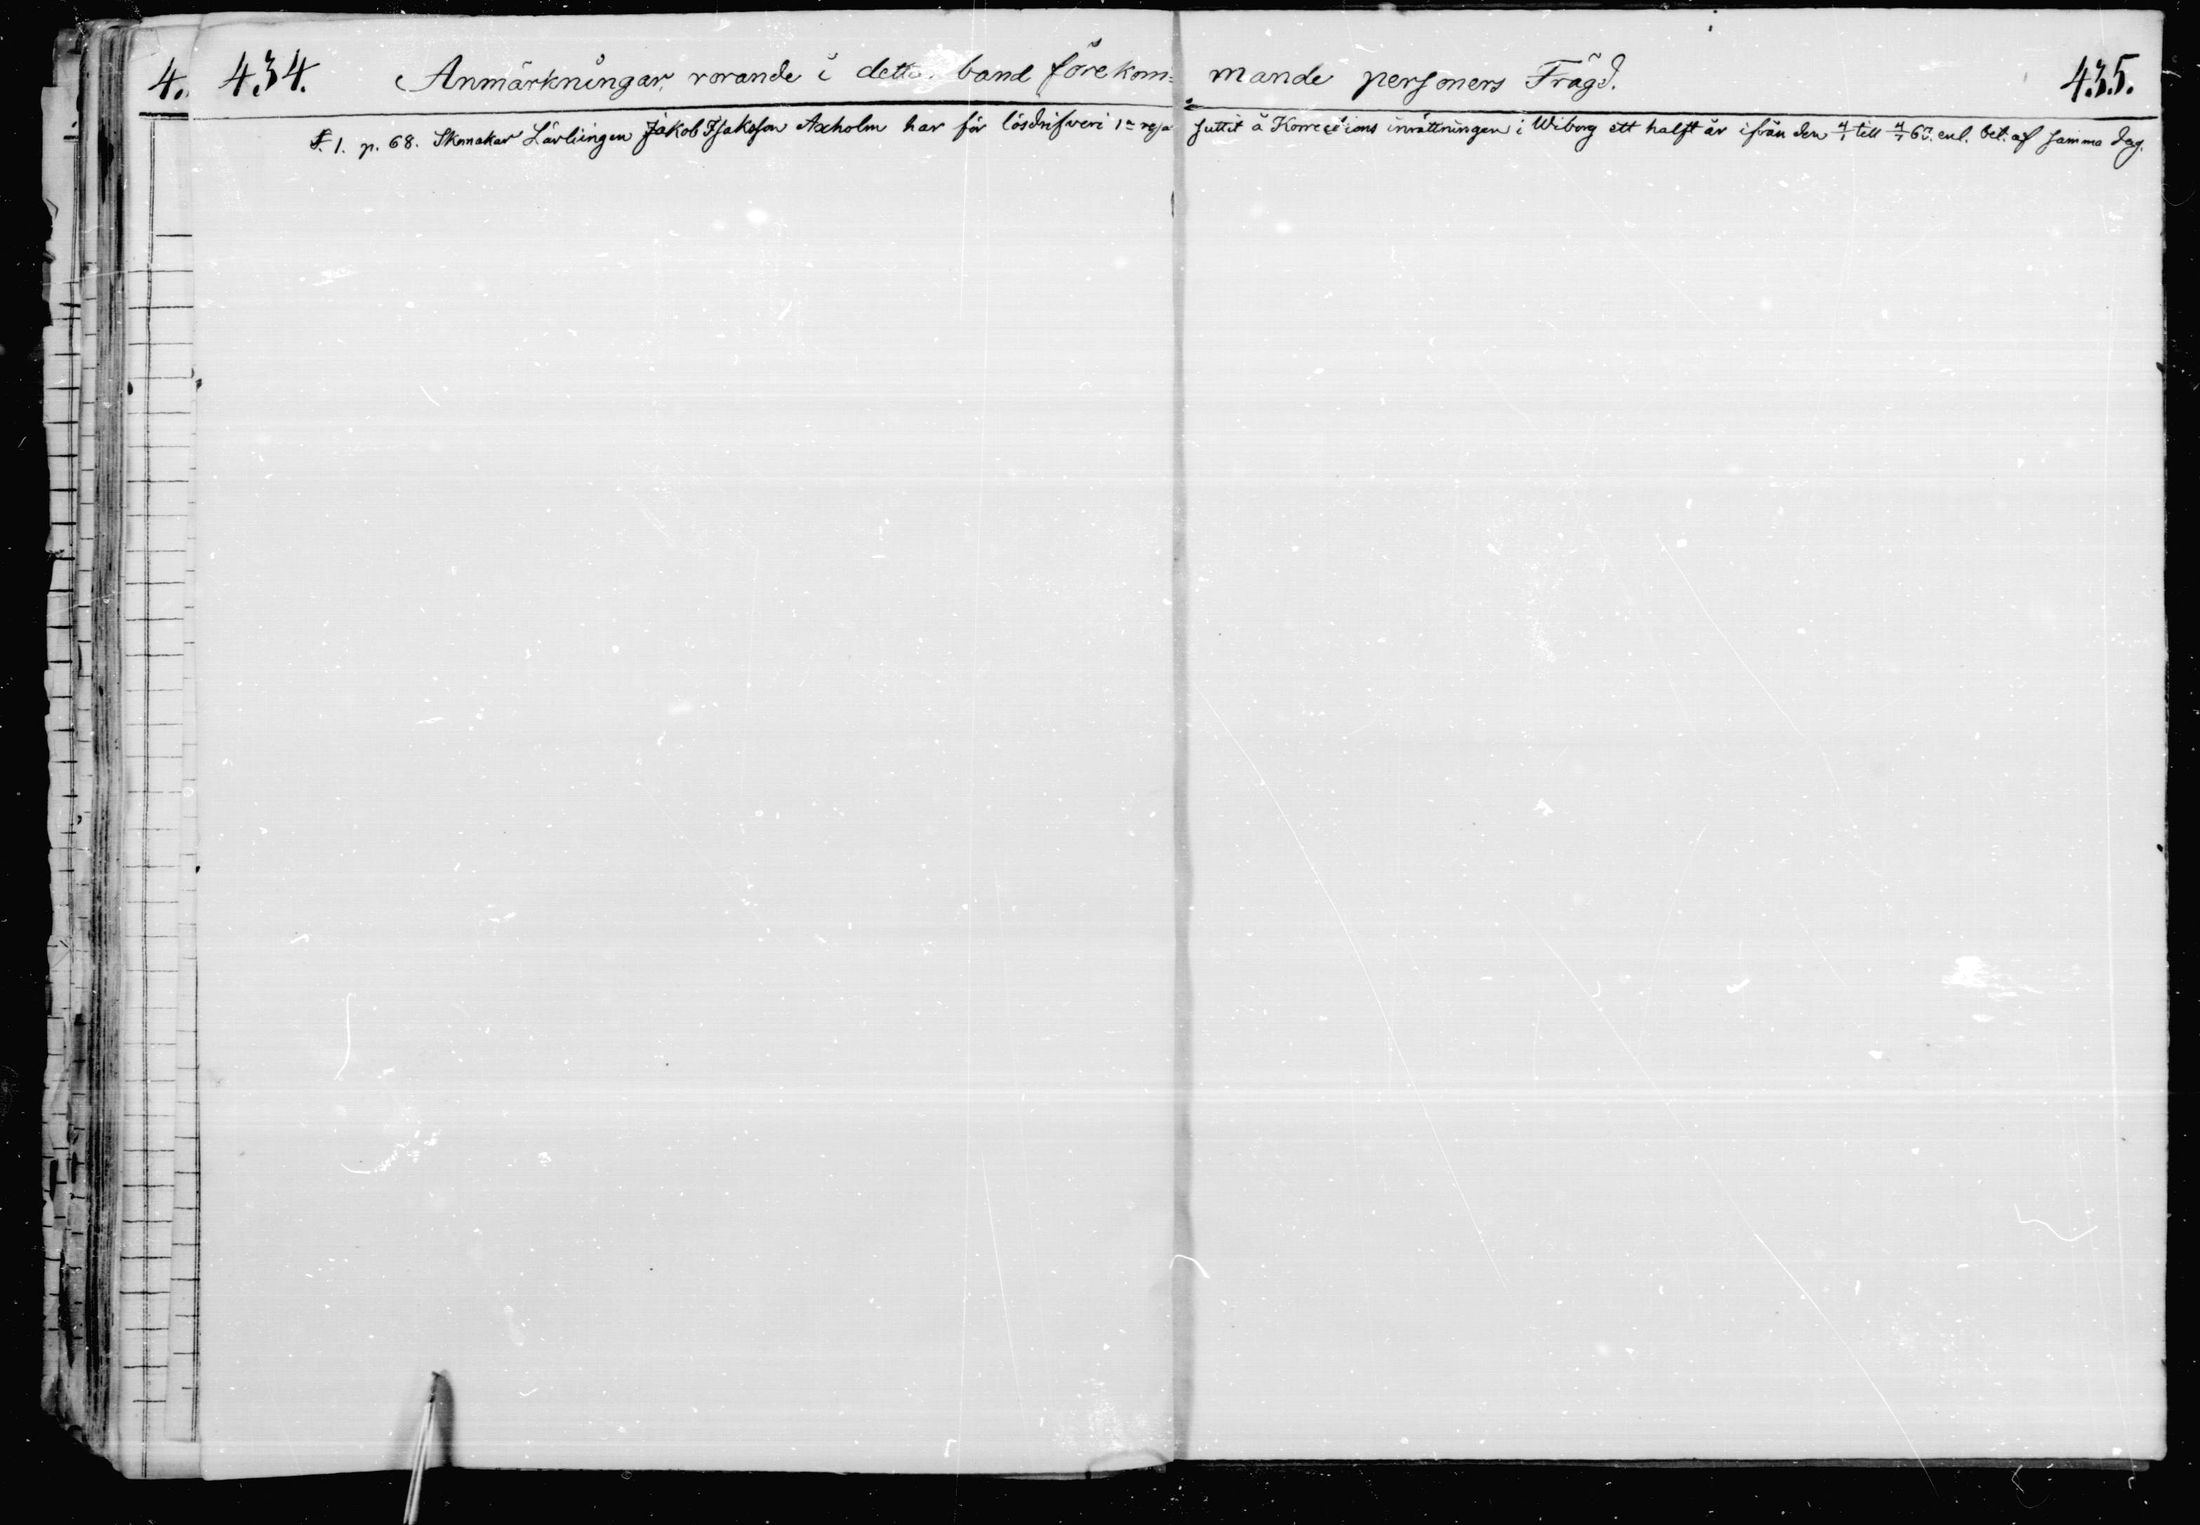 4. 434. Anmärkningar, rorande i detta band förekom= mande personers Frägd. 435.
§. 1. p. 68. Skomakar Lärlingen Jakob Isaksson Axholm har för lösdrifveri 1a resa suttit å Korrections inrättningen i Wiborg ett halft år ifrån den 4/1 till 4/7 67. enl. bet. af samma dag.